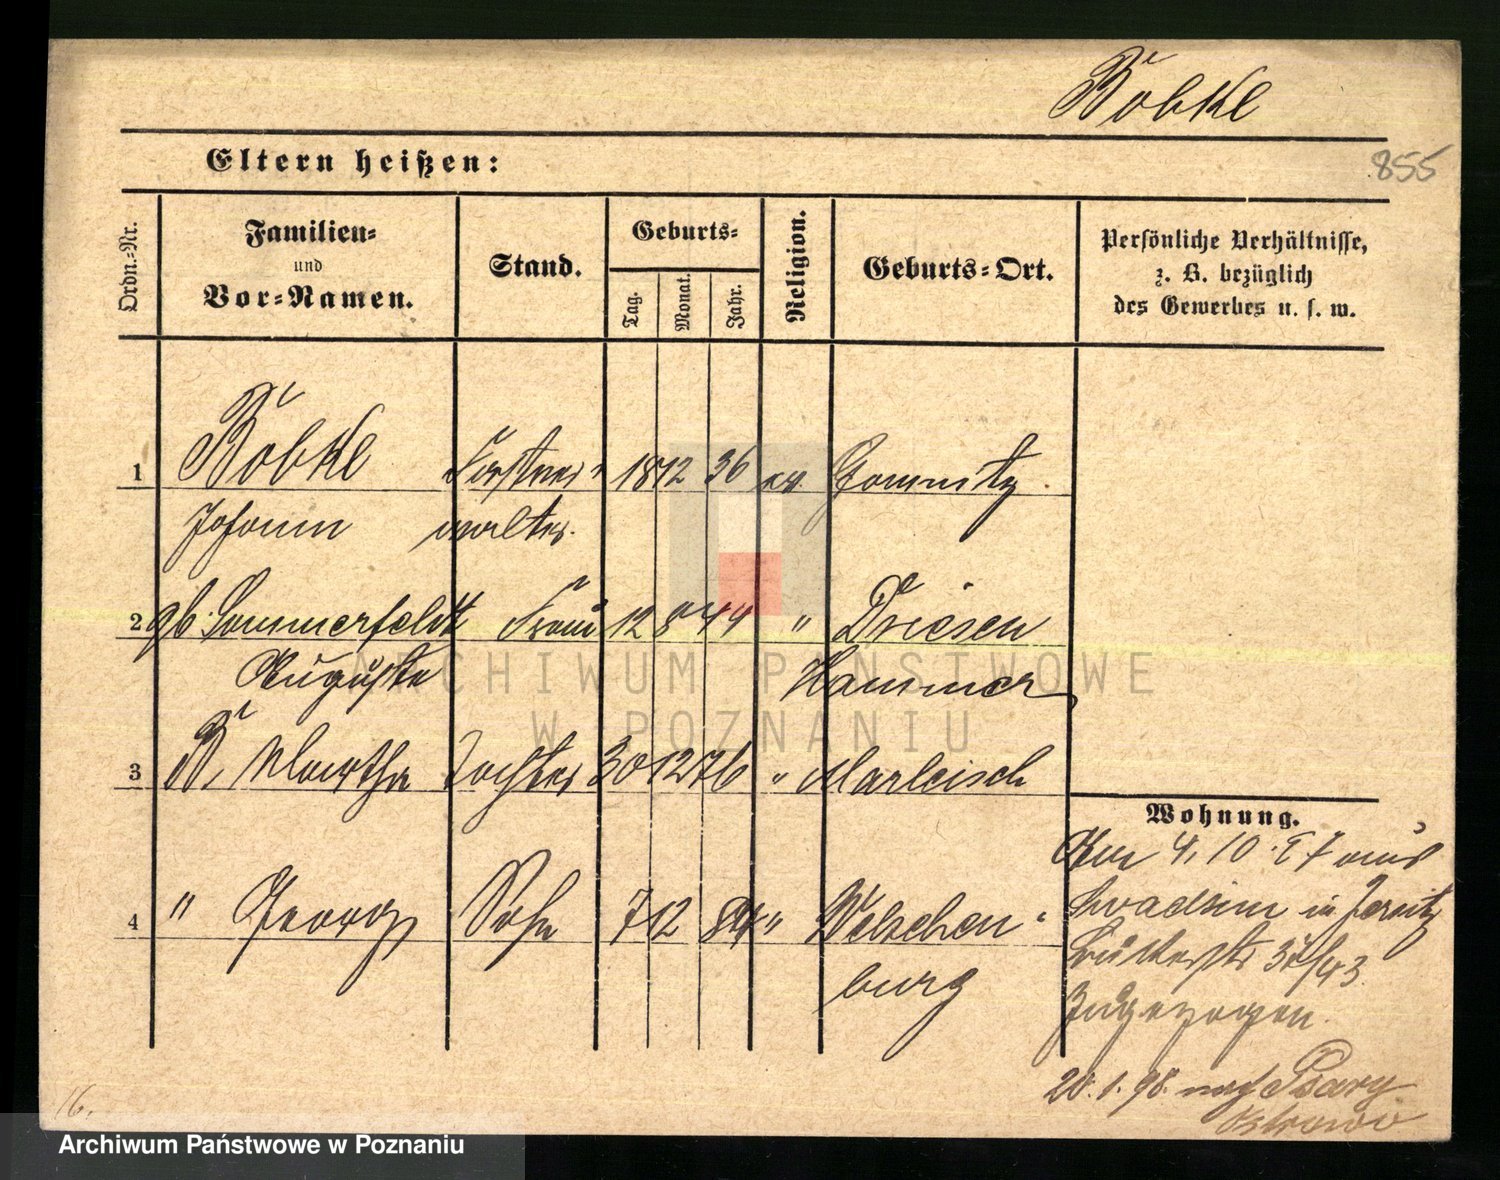 Böbke
855
Eltern heißen:
Ordn.-Nr.
Familien-
und
Vor-Namen.
Stand.
Geburts-
Tag.
Monat.
Jahr.
Religion.
Geburts-Ort.
Persönliche Verhältnisse,
z. B. bezüglich
des Gewerbes u. s. w.
1 Böbke Forstver- 18 12 36 ev.
Johann walter.
2 gb. Sommerfeldt Frau 12 8 44 " Driesen
Auguste Hammer
3 B. Martha Tochter 30 12 76 " Marleisch
4 " Georg Sohn 7 12 84 " Welschen-
burg
Wohnung.
Am 4. 10. 97 aus
in Jersitz
37/43
Zugezogen.
20. 1. 98. nach Psary
Ostrowo
16.
ARCHIWUM PAŃSTWOWE
W POZNANIU
Archiwum Państwowe w Poznaniu